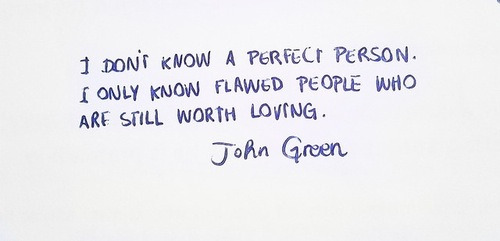 I DON'T KNOW A PERFECT PERSON.
I ONLY KNOW FLAWED PEOPLE WHO
ARE STILL WORTH LOVING.
John Green